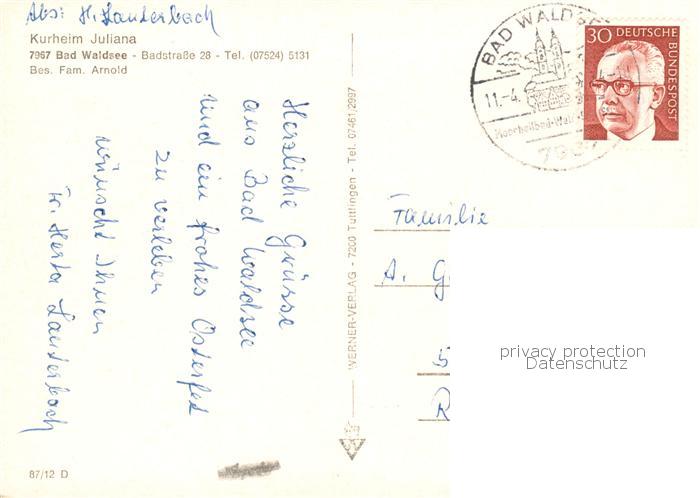 Abs: H. Lauterbach
Kurheim Juliana
7967 Bad Waldsee - Badstraße 28 - Tel. (07524) 5131
Bes. Fam. Arnold
Herzliche Grüsse
aus Bad Waldsee
und ein frohes Osterfest
zu verleben
wünscht Ihnen
Fr. Herta Lauterbach
87/12 D
WERNER-VERLAG - 7200 Tuttlingen - Tel. 07461/2997
BAD WALDSE
11.-4.
Moorheilbad
30 DEUTSCHE
BUNDESPOST
Familie
A. G
5
R
privacy protection
Datenschutz